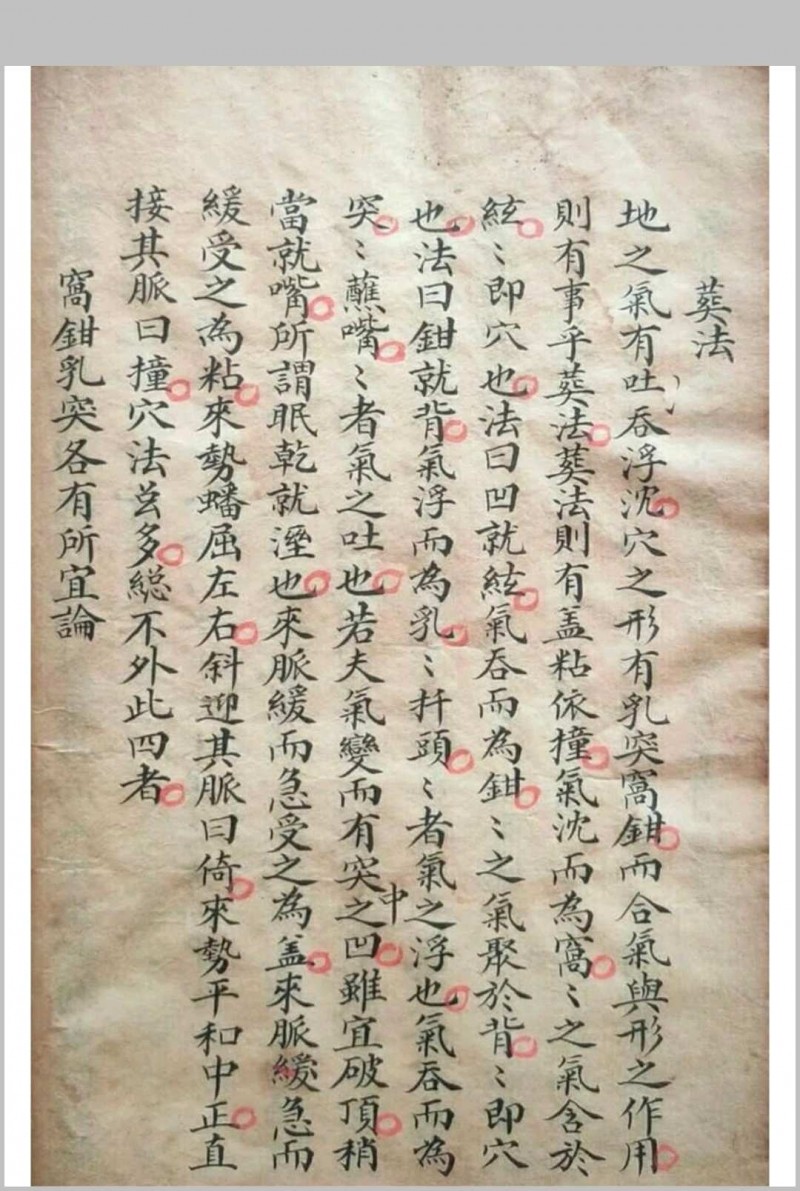 葬法
地之氣有吐吞浮沈穴之形有乳突窩鉗而合氣與形之作用
則有事乎葬法葬法則有盖粘依撞氣沈而為窩〻之氣含於
絃〻即穴也法曰凹就絃氣吞而為鉗〻之氣聚於背〻即穴
也法曰鉗就背氣浮而為乳〻扦頭〻者氣之浮也氣吞而為
突〻蘸嘴〻者氣之吐也若夫氣變而有突之中凹雖宜破頂稍
當就嘴所謂眠乾就溼也來脈緩而急受之為盖來脈緩急而
緩受之為粘來勢蟠屈左右斜迎其脈曰倚來勢平和中正直
接其脈曰撞穴法㒷多総不外此四者
窩鉗乳突各有所宜論